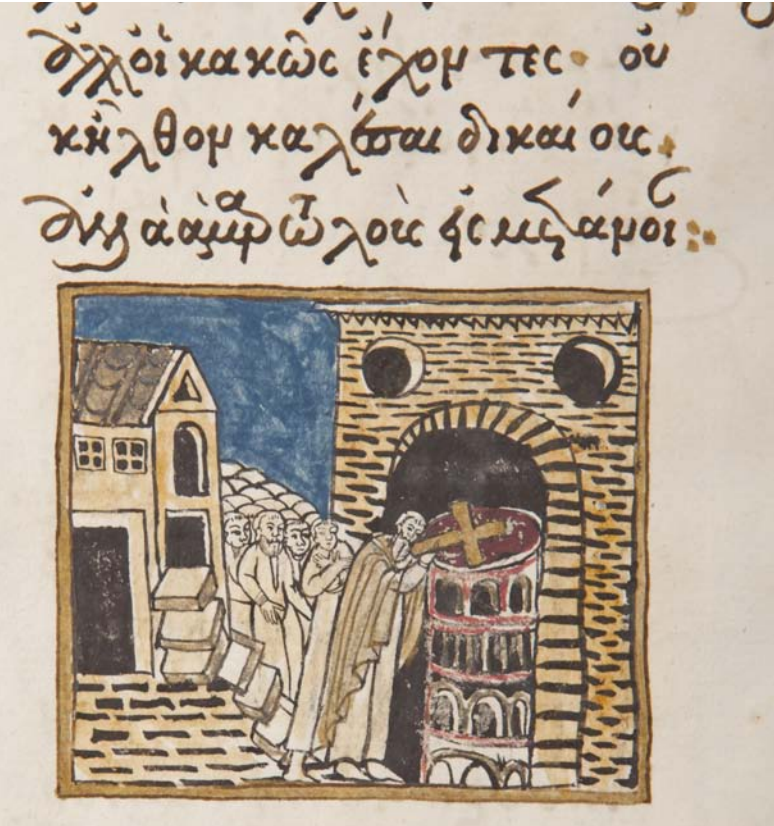 ἀλλ' οἱ κακῶς ἔχοντες· οὐ
κ ἦλθον καλέσαι δικαίους·
ἀλλὰ ἁμαρτωλοὺς εἰς μετάνοι: